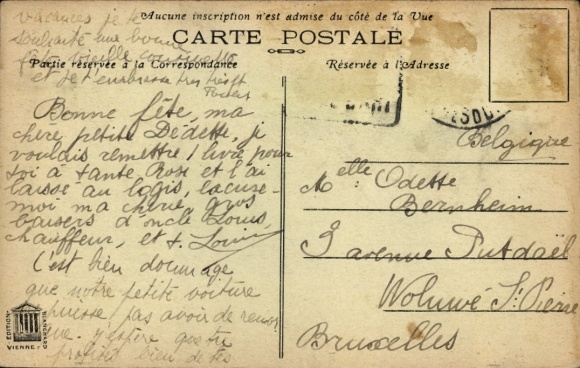 Aucune inscription n'est admise du côté de la Vue
CARTE POSTALE
Partie réservée à la Correspondance
Réservée à l'Adresse
Bonne fête, ma
chère petite Dédette, je
voulais remettre 1 livre pour
toi à tante Rose et l'ai
laissé au logis, excuse-
moi ma chérie, gros
baisers d'oncle Louis,
chauffeur, et t. Louise
C'est bien dommage
que notre petite voiture
puisse pas avoir de
que. j'espère que tu
profites bien de tes
vacances je te
souhaite une bonne
fête vieille
et je t'embrasse très fort
Belgique
Melle Odette
Bernheim
3 avenue Putdaël
Woluwé St Pierre
Bruxelles
EDITIONS
BLANCHARD
VIENNE